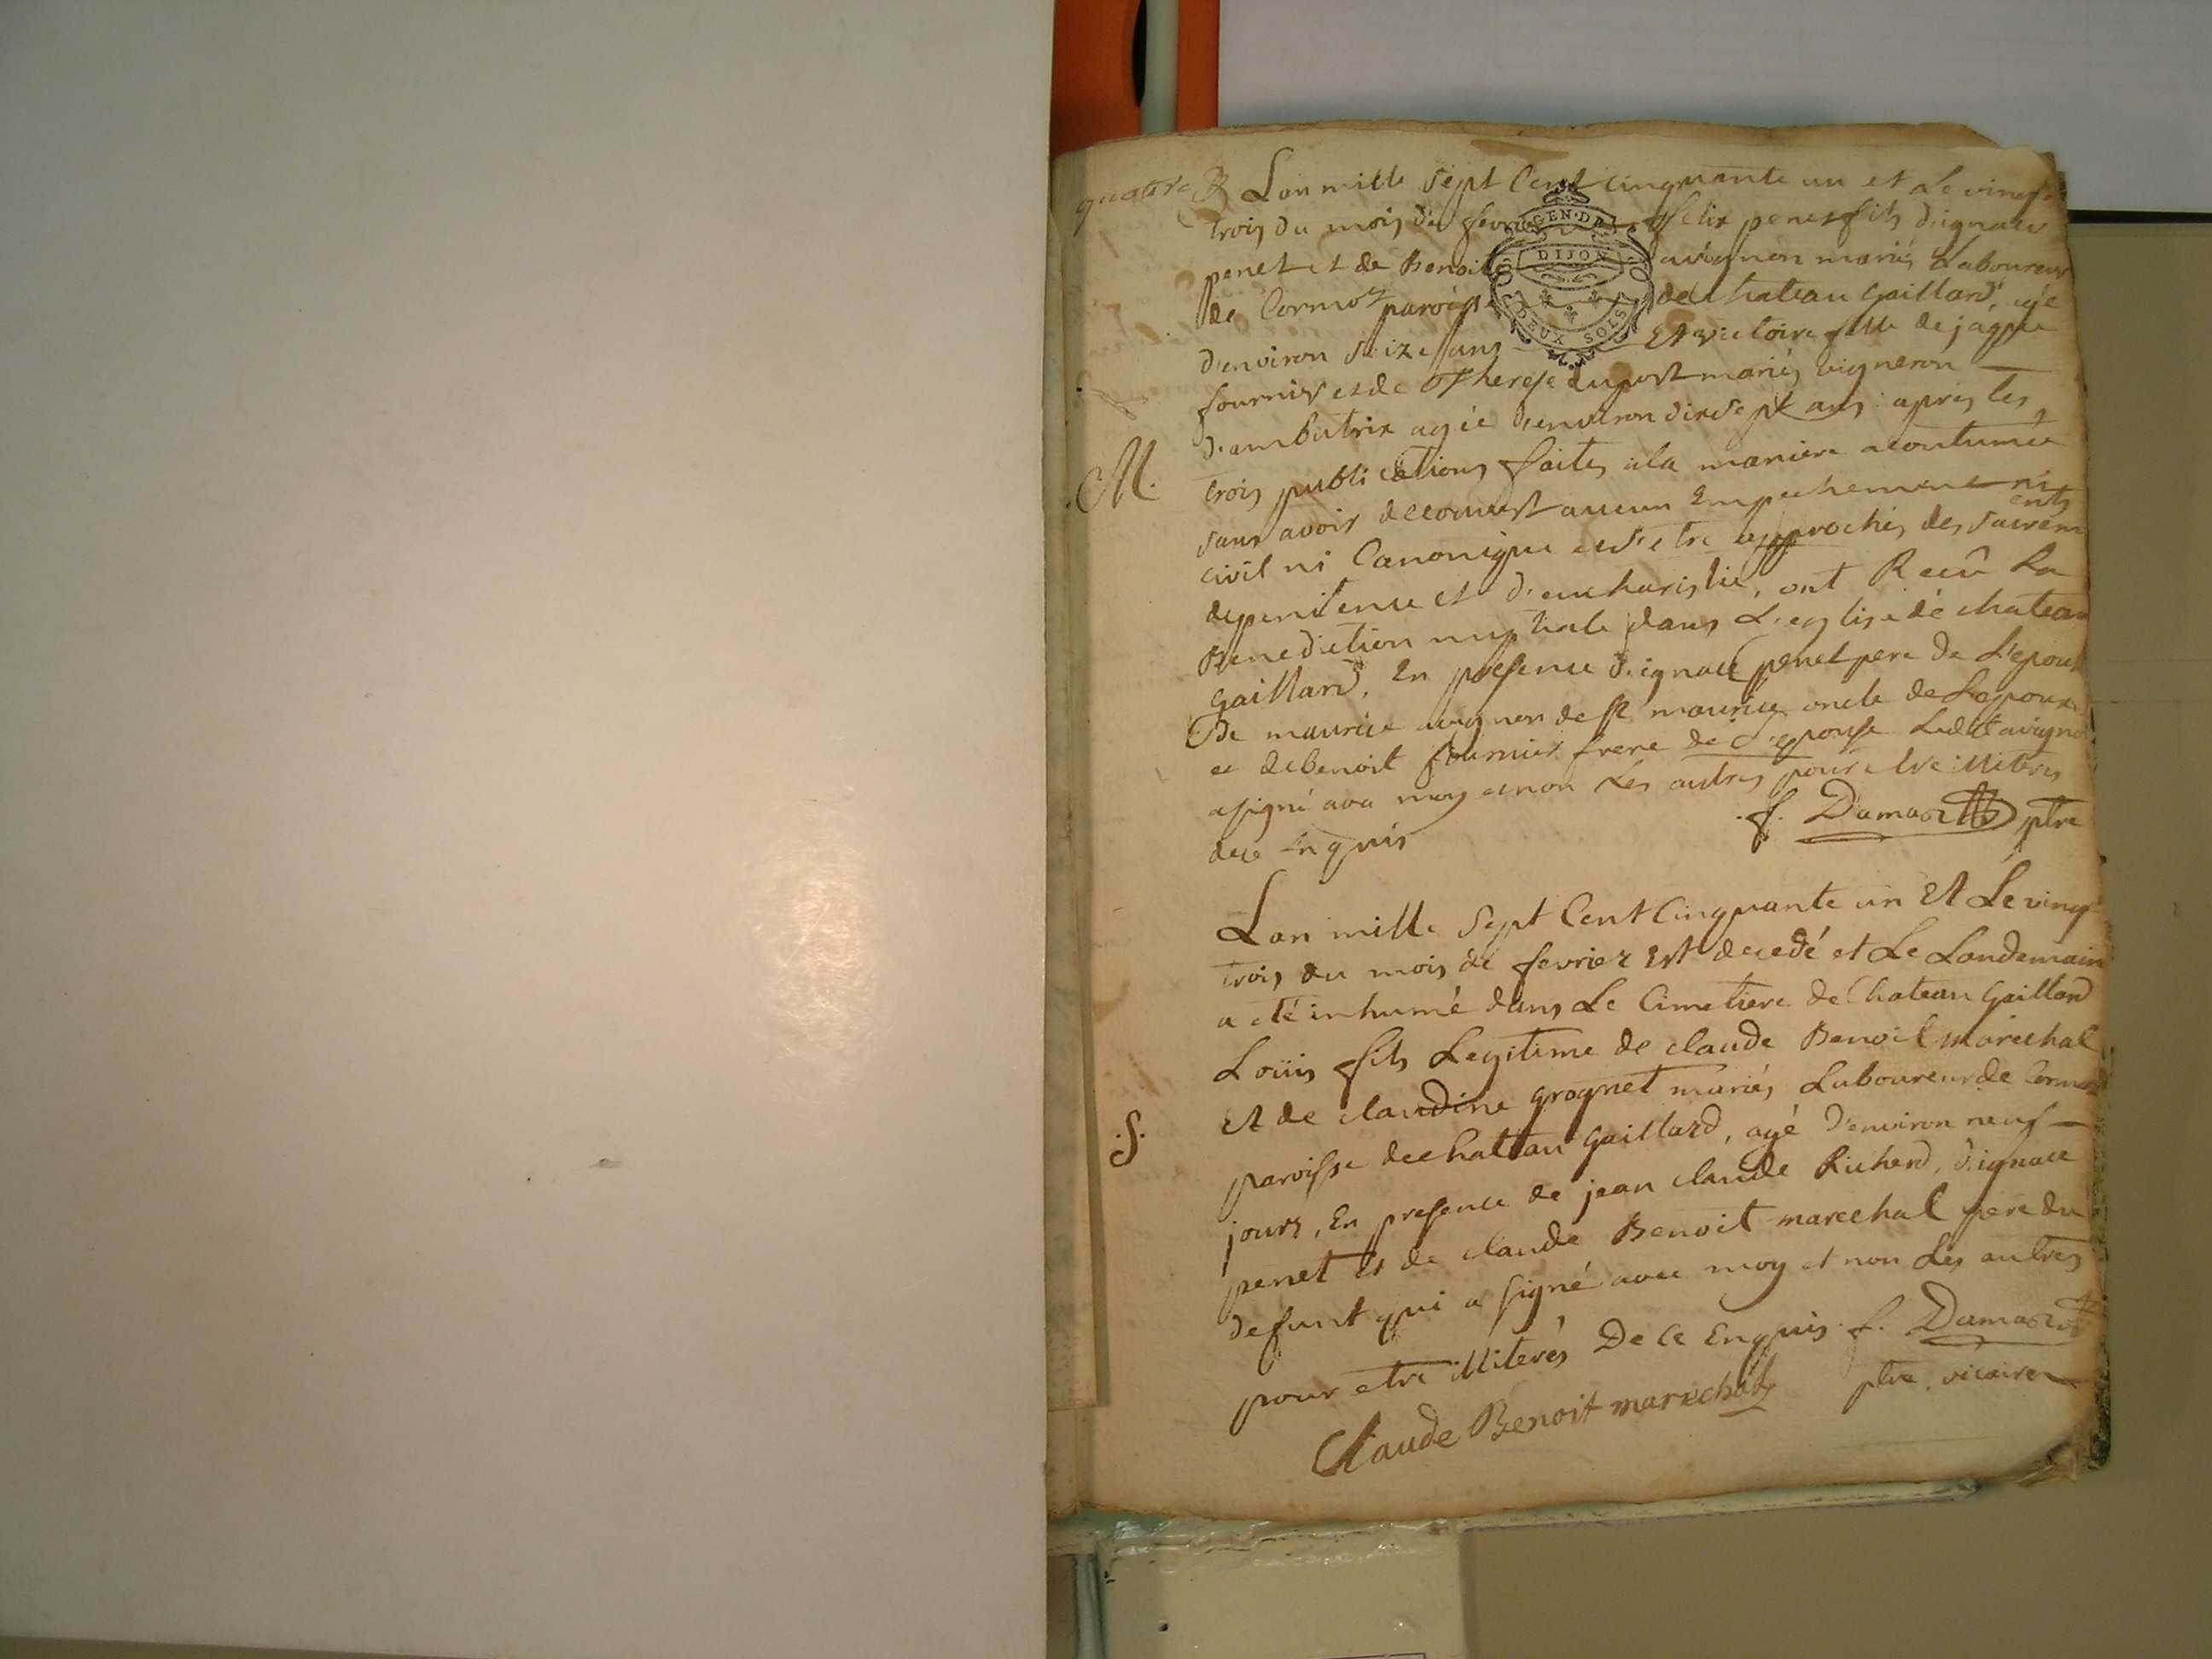 quatre
Lan mille sept Cent cinquante un et Le vingt
trois du mois de fevrier felix penet fils d'ignace
penet et de Benoite avignon mariés Laboureur
de Cormoz paroisse de chateau Gaillard, agé
d'environ seize ans Et victoire fille de jáque
fournier et de Therese dupost mariés vigneron
d'ambutrix agée d'environ dixsept ans apres les
M.
trois publications faites ala maniere acoutumée
sans avoir decouvert aucun Empechement ni
civil ni Canonique et s'etre approchés des sacrements
de penitence et d'eucharistie, ont Recû La
Benediction nuptiale dans L'eglise de chateau
Gaillard, En presence d'ignace penet pere de L'epoux
De maurice avignon de st maurice oncle de Lepoux
et de benoit fournier frere de L'epouse Ledit avignon
a signé avec moy et non Les autres pour etre illiteres
de ce Enquis
f. Damas ptre
GEN. DE
DIJON
DEUX SOLS
Lan mille sept Cent Cinquante un Et Le vingt
trois du mois de fevrier Est decedé et Le Landemain
a eté inhumé dans Le Cimetiere de Chateau Gaillard
Loüis fils Legitime de claude Benoit maréchal
S.
Et de claudine grognet mariés Laboureur de Cormoz
paroisse de chateau Gaillard, agé d'environ neuf
jours, En presence de jean claude Richerd, d'ignace
penet et de claude Benoit marechal pere du
defunt qui a signé avec moy et non Les autres
pour etre illiterés De ce Enquis f. Damas
ptre vicaire
Claude Benoit marechal